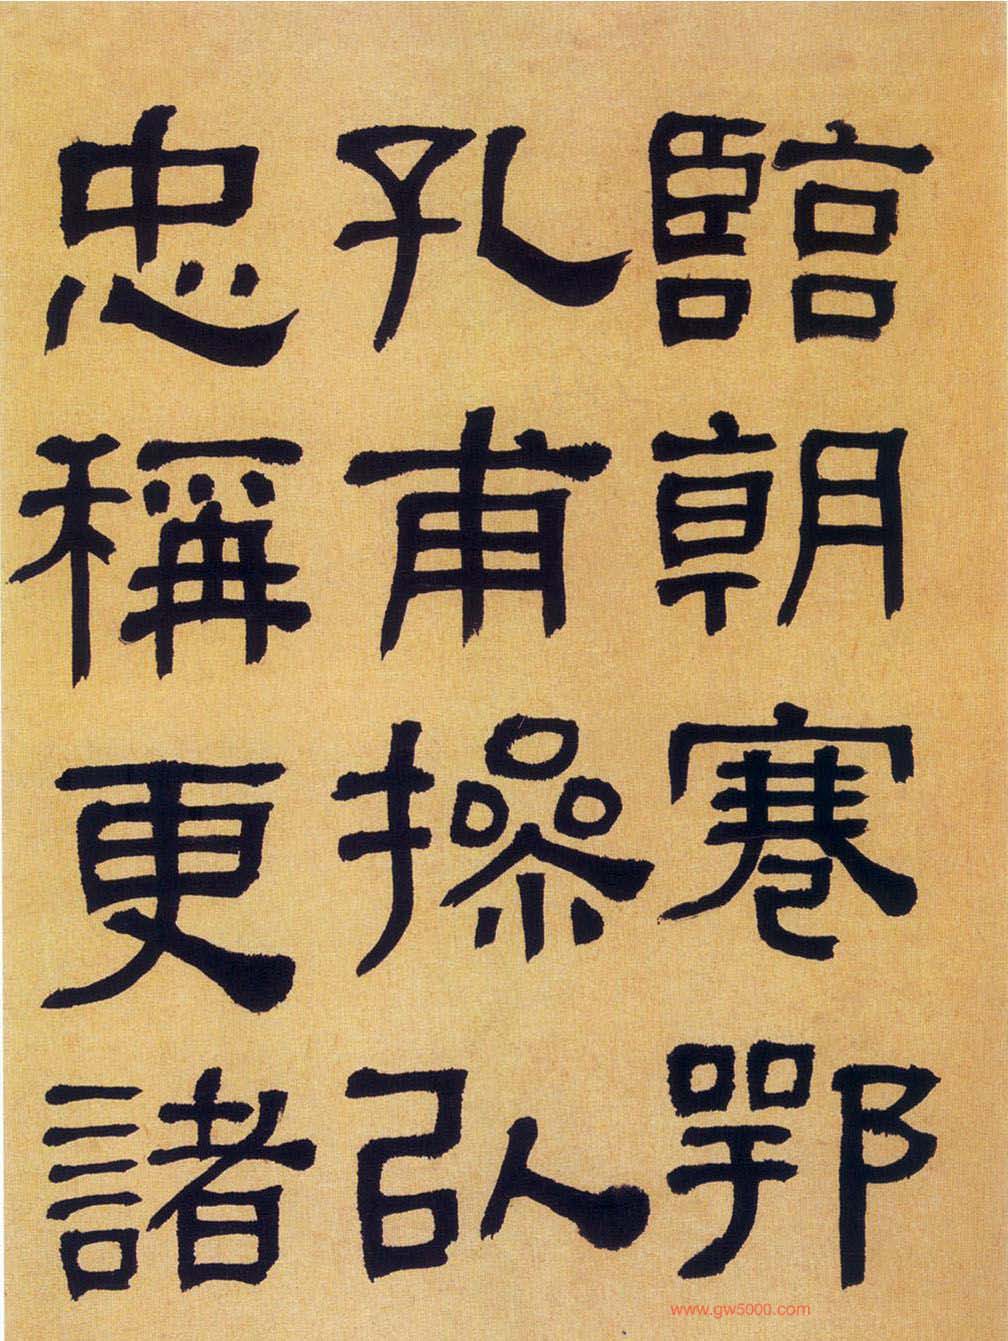 臨朝蹇鄂
孔甫操弘
忠稱更諸
www.gw5000.com